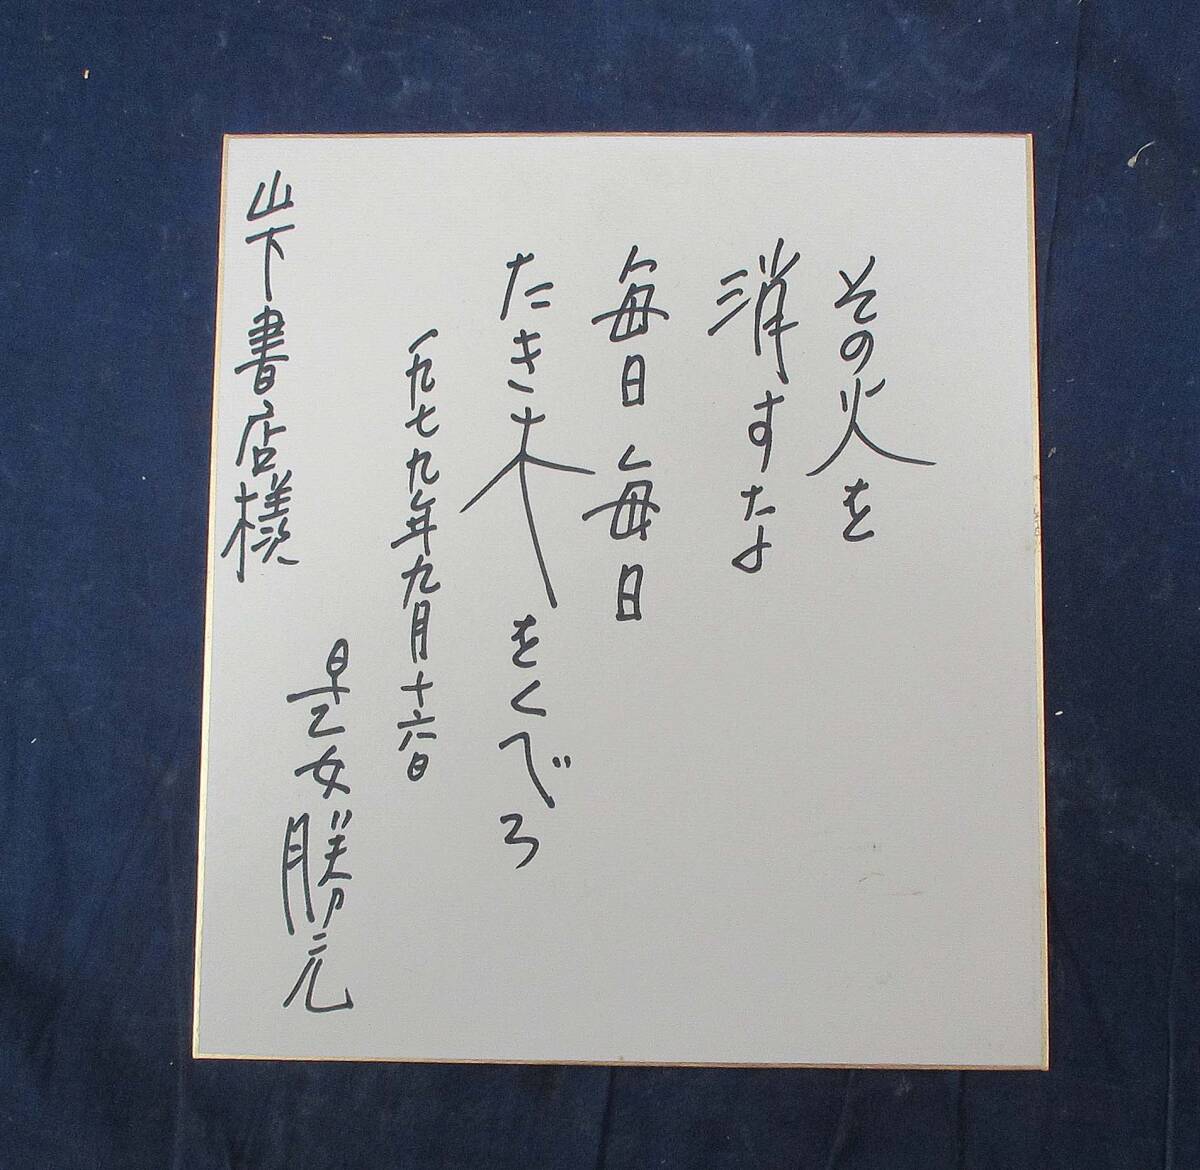 その火を
消すな
毎日毎日
たき木をくべろ
一九七九年九月十六日
早乙女勝元
山下書店様